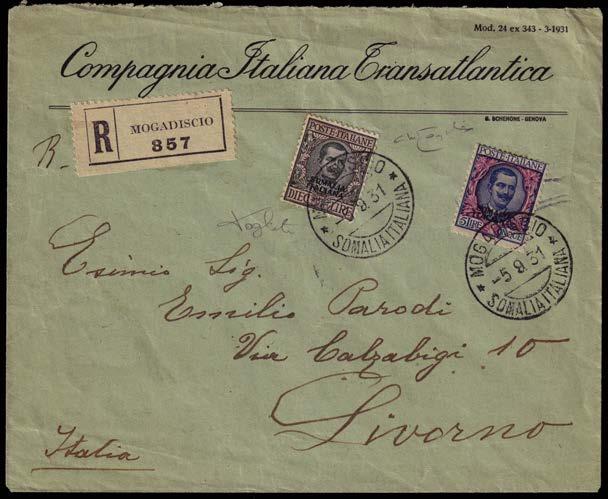 Mod. 24 ex 343 - 3-1931
Compagnia Italiana Transatlantica
G. SCHENONE - GENOVA
R
MOGADISCIO
857
R.
POSTE ITALIANE
SOMALIA
ITALIANA
DIECI LIRE
MOGADISCIO
9.31
SOMALIA ITALIANA
POSTE ITALIANE
5 LIRE
MOGADISCIO
-5.9.31
SOMALIA ITALIANA
Esimio Sig.
Emilio Parodi
Via Calzabigi 10
Livorno
Italia